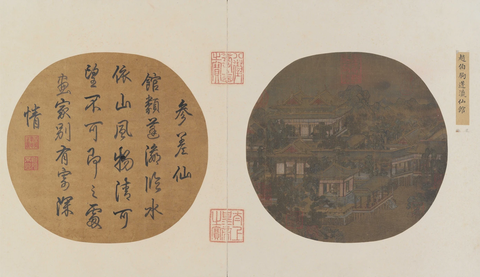 參差仙
館類蓬瀛臨水
依山風物清可
望不可即之處
畫家別有寄深
情
趙伯駒蓬瀛仙館